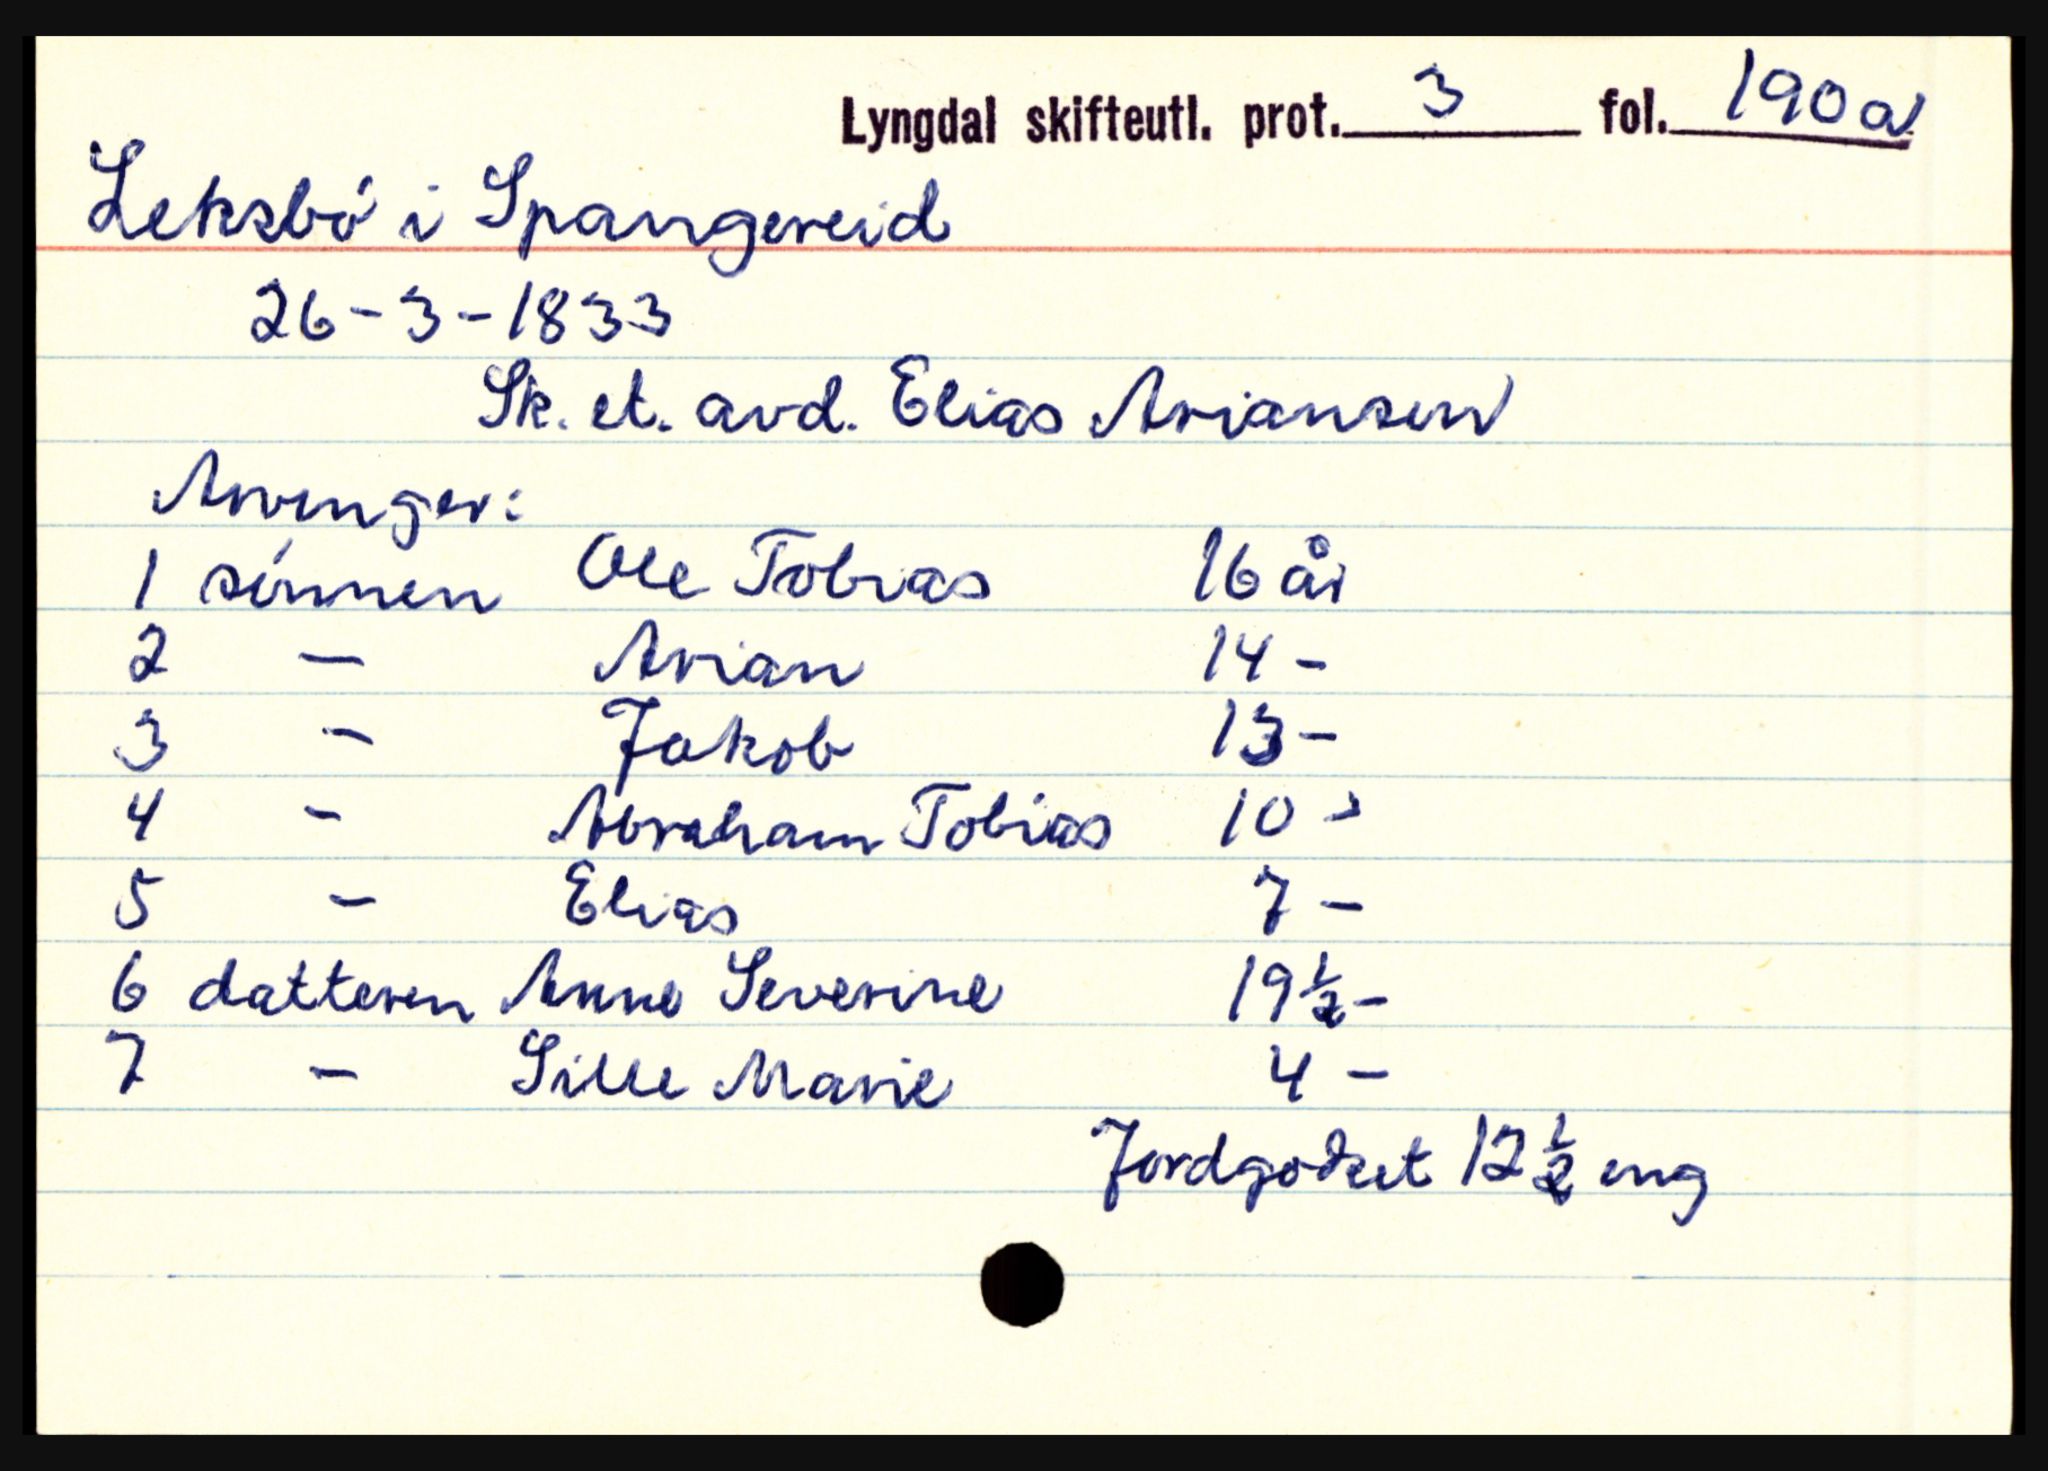 Lyngdal skifteutl. prot. 3 fol. 190a
Leksbó i Spangereid
26-3-1833
Sk. et. avd. Elias Ariansen
Arvinger:
1 sónnen Ole Tobias 16 år
2 - Arian 14 -
3 - Jakob 13 -
4 - Abraham Tobias 10 -
5 - Elias 7 -
6 datteren Anne Severine 19 1/2 -
7 - Sille Marie 4 -
Jordgodset 12 1/2 eng